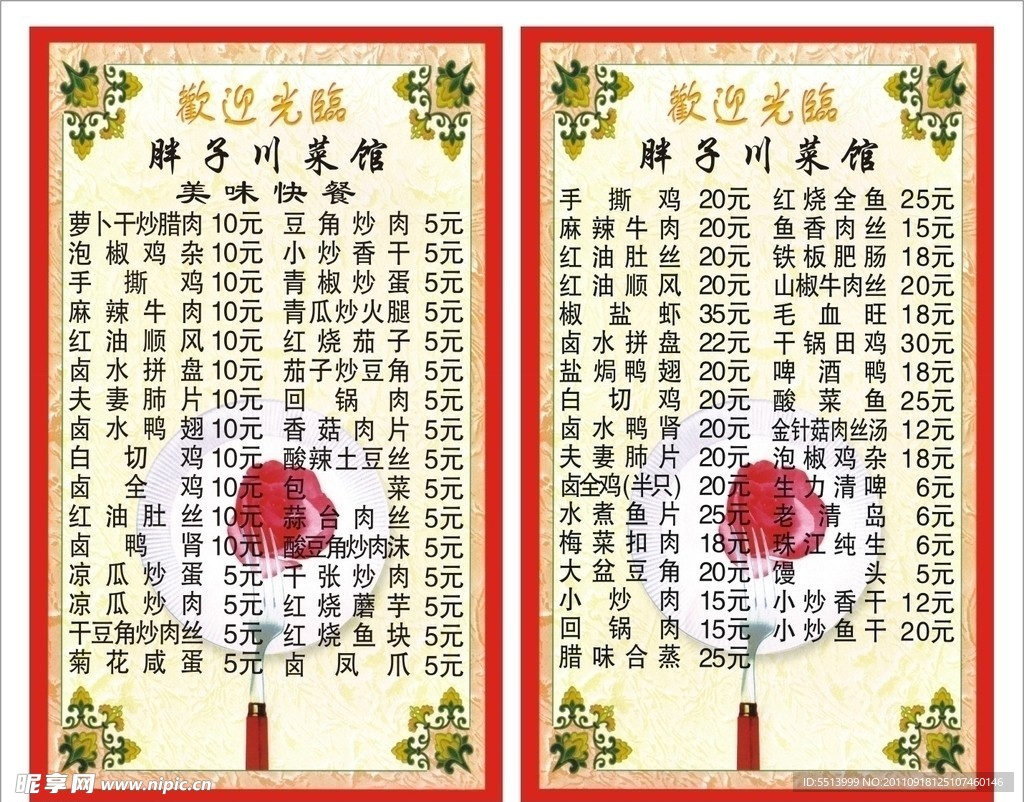 歡迎光臨
胖子川菜馆
美味快餐
萝卜干炒腊肉 10元 豆角炒肉 5元
泡椒鸡杂 10元 小炒香干 5元
手撕鸡 10元 青椒炒蛋 5元
麻辣牛肉 10元 青瓜炒火腿 5元
红油顺风 10元 红烧茄子 5元
卤水拼盘 10元 茄子炒豆角 5元
夫妻肺片 10元 回锅肉 5元
卤水鸭翅 10元 香菇肉片 5元
白切鸡 10元 酸辣土豆丝 5元
卤全鸡 10元 包菜 5元
红油肚丝 10元 蒜台肉丝 5元
卤鸭肾 10元 酸豆角炒肉沫 5元
凉瓜炒蛋 5元 干张炒肉 5元
凉瓜炒肉 5元 红烧蘑芋 5元
干豆角炒肉丝 5元 红烧鱼块 5元
菊花咸蛋 5元 卤凤爪 5元
歡迎光臨
胖子川菜馆
手撕鸡 20元 红烧全鱼 25元
麻辣牛肉 20元 鱼香肉丝 15元
红油肚丝 20元 铁板肥肠 18元
红油顺风 20元 山椒牛肉丝 20元
椒盐虾 35元 毛血旺 18元
卤水拼盘 22元 干锅田鸡 30元
盐焗鸭翅 20元 啤酒鸭 18元
白切鸡 20元 酸菜鱼 25元
卤水鸭肾 20元 金针菇肉丝汤 12元
夫妻肺片 20元 泡椒鸡杂 18元
卤全鸡(半只) 20元 生力清啤 6元
水煮鱼片 25元 老清岛 6元
梅菜扣肉 18元 珠江纯生 6元
大盆豆角 20元 馒头 5元
小炒肉 15元 小炒香干 12元
回锅肉 15元 小炒鱼干 20元
腊味合蒸 25元
昵享网 www.nipic.cn
ID:5513999 NO:20110918125107460146